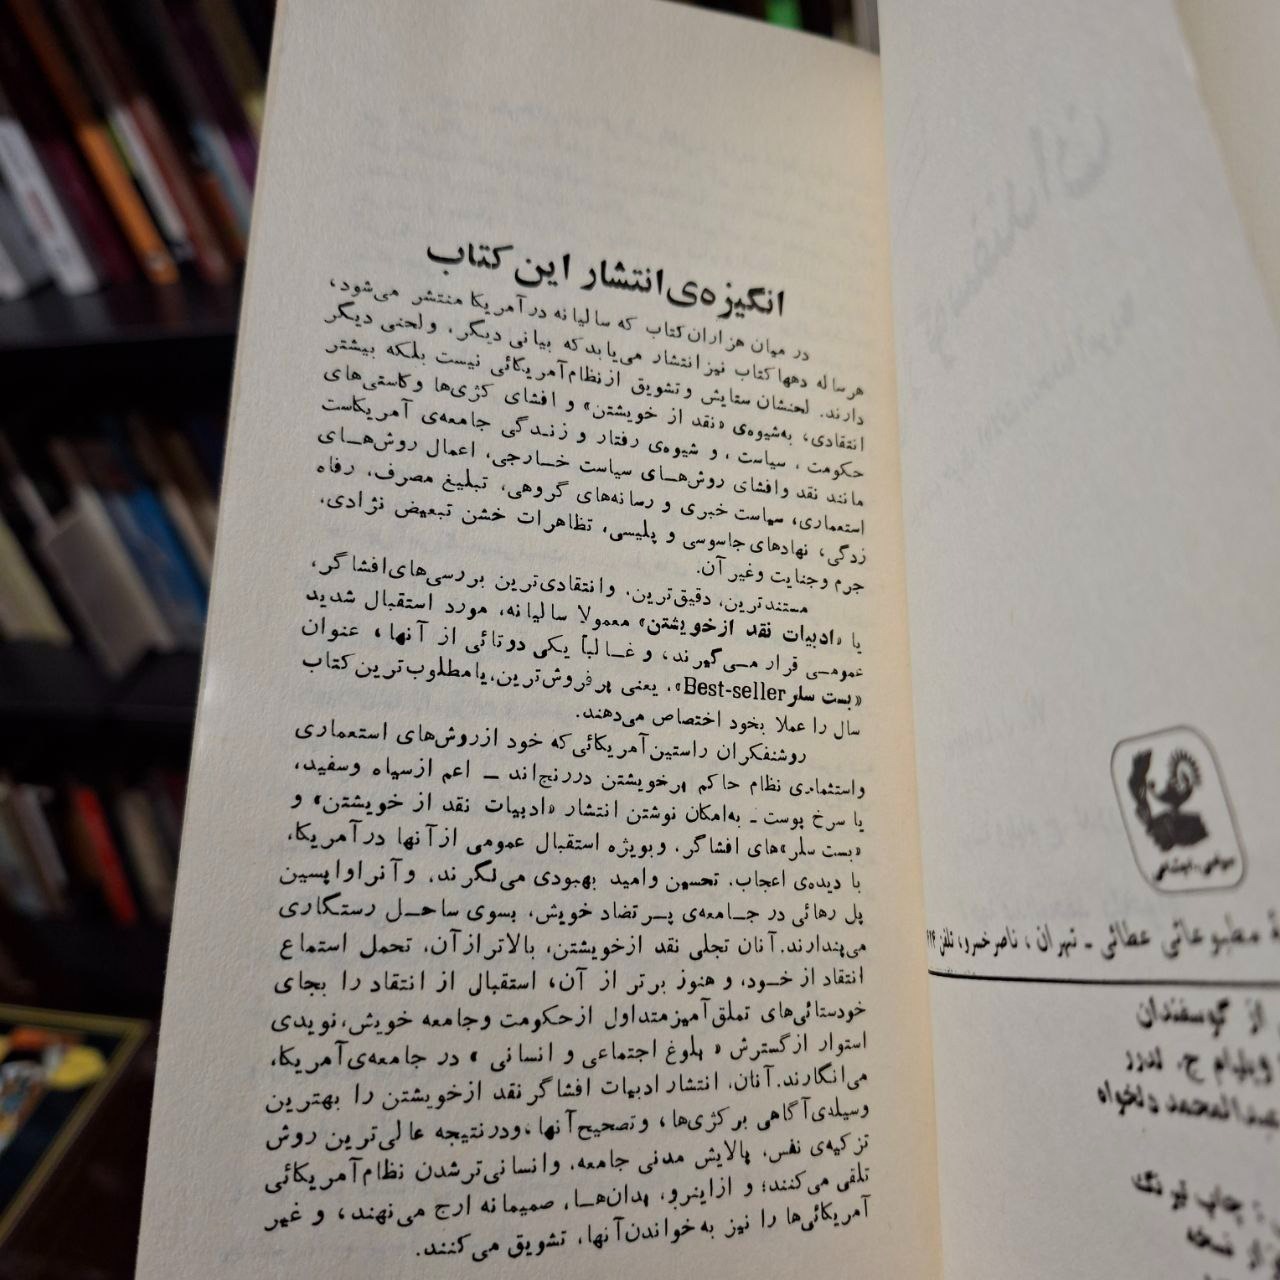 انگیزه‌ی انتشار این کتاب
در میان هزاران کتاب که سالیانه در آمریکا منتشر می‌شود،
هرساله دهها کتاب نیز انتشار می‌یابد که بیانی دیگر، و لحنی دیگر
دارند. لحنشان ستایش و تشویق از نظام آمریکائی نیست بلکه بیشتر
انتقادی، به‌شیوه‌ی «نقد از خویشتن» و افشای کژی‌ها و کاستی‌های
حکومت، سیاست، و شیوه‌ی رفتار و زندگی جامعه‌ی آمریکاست
مانند نقد و افشای روش‌های سیاست خارجی، اعمال روش‌های
استعماری، سیاست خبری و رسانه‌های گروهی، تبلیغ مصرف، رفاه
زدگی، نهادهای جاسوسی و پلیسی، تظاهرات خشن تبعیض نژادی،
جرم و جنایت و غیر آن.
مستندترین، دقیق‌ترین، و انتقادی‌ترین بررسی‌های افشاگر،
یا «ادبیات نقد ازخویشتن» معمولا سالیانه، مورد استقبال شدید
عمومی قرار می‌گیرند، و غالباً یکی دوتائی از آنها، عنوان
«بست سلر Best-seller»، یعنی پرفروش‌ترین، یا مطلوب‌ترین کتاب
سال را عملا بخود اختصاص می‌دهند.
روشنفکران راستین آمریکائی که خود ازروش‌های استعماری
واستثماری نظام حاکم برخویشتن دررنج‌اند – اعم ازسیاه وسفید،
یا سرخ پوست – به‌امکان نوشتن انتشار «ادبیات نقد از خویشتن» و
«بست سلر»های افشاگر، وبویژه استقبال عمومی ازآنها درآمریکا،
با دیده‌ی اعجاب، تحسین وامید بهبودی می‌نگرند، وآنراواپسین
پل رهائی در جامعه‌ی پر تضاد خویش، بسوی ساحل رستگاری
می‌پندارند. آنان تجلی نقد ازخویشتن، بالاترازآن، تحمل استماع
انتقاد از خود، و هنوز برتر از آن، استقبال از انتقاد را بجای
خودستائی‌های تملق‌آمیز متداول ازحکومت وجامعه خویش، نویدی
استوار ازگسترش «بلوغ اجتماعی و انسانی» در جامعه‌ی آمریکا،
می‌انگارند. آنان، انتشار ادبیات افشاگر نقد ازخویشتن را بهترین
وسیله‌ی آگاهی برکژی‌ها، وتصحیح آنها، ودرنتیجه عالی‌ترین روش
تزکیه‌ی نفس، پالایش مدنی جامعه، وانسانی‌ترشدن نظام آمریکائی
تلقی می‌کنند؛ و ازاینرو، بدان‌ها، صمیمانه ارج می‌نهند، و غیر
آمریکائی‌ها را نیز به‌خواندن آنها، تشویق می‌کنند.
مطبوعاتی عطائی – تهران، ناصرخسرو، تلفن
از گوسفندان
ویلیام ج. لدرر
عبدالمحمد دلخواه
چاپ
نسخه